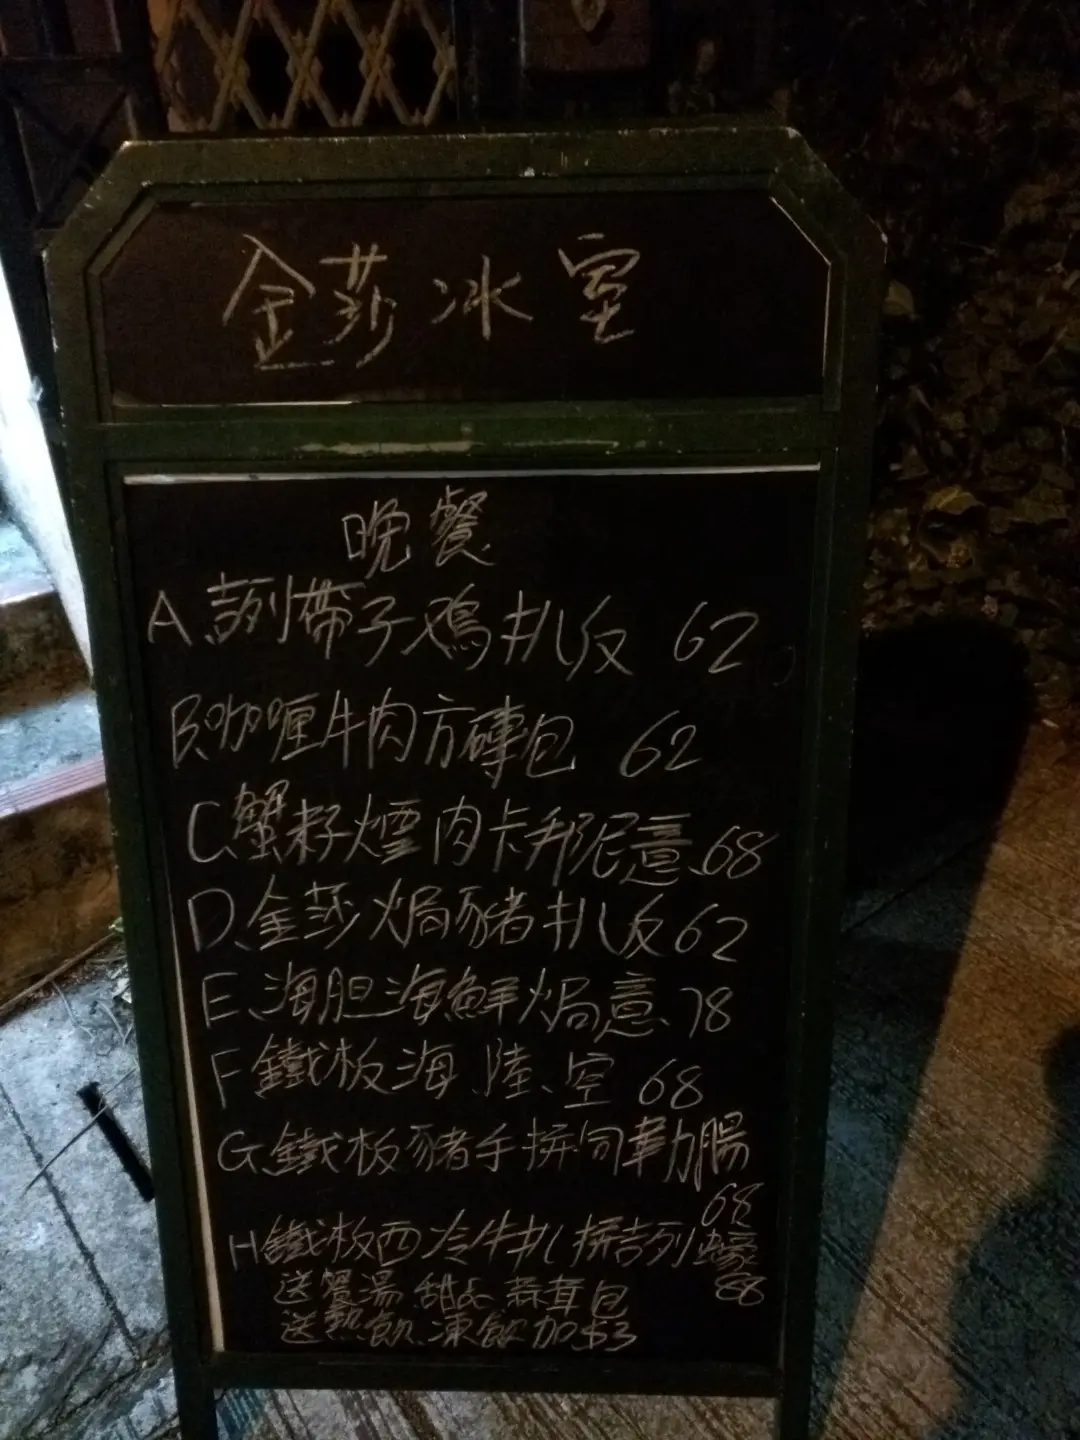 金莎冰室
晚餐
A.訓帶子鸡扒反 62
B.咖喱牛肉方磚包 62
C.蟹籽煙肉卡邦尼意 68
D.金莎焗豬扒反 62
E.海胆海鮮焗意 78
F.鐵板海、陸、空 68
G.鐵板豬手拼同勤腸
68
H.鐵板西冷牛扒拼吉列蠔
88
送餐湯 甜品 蒜茸包
送熱飲.凍飲加$3